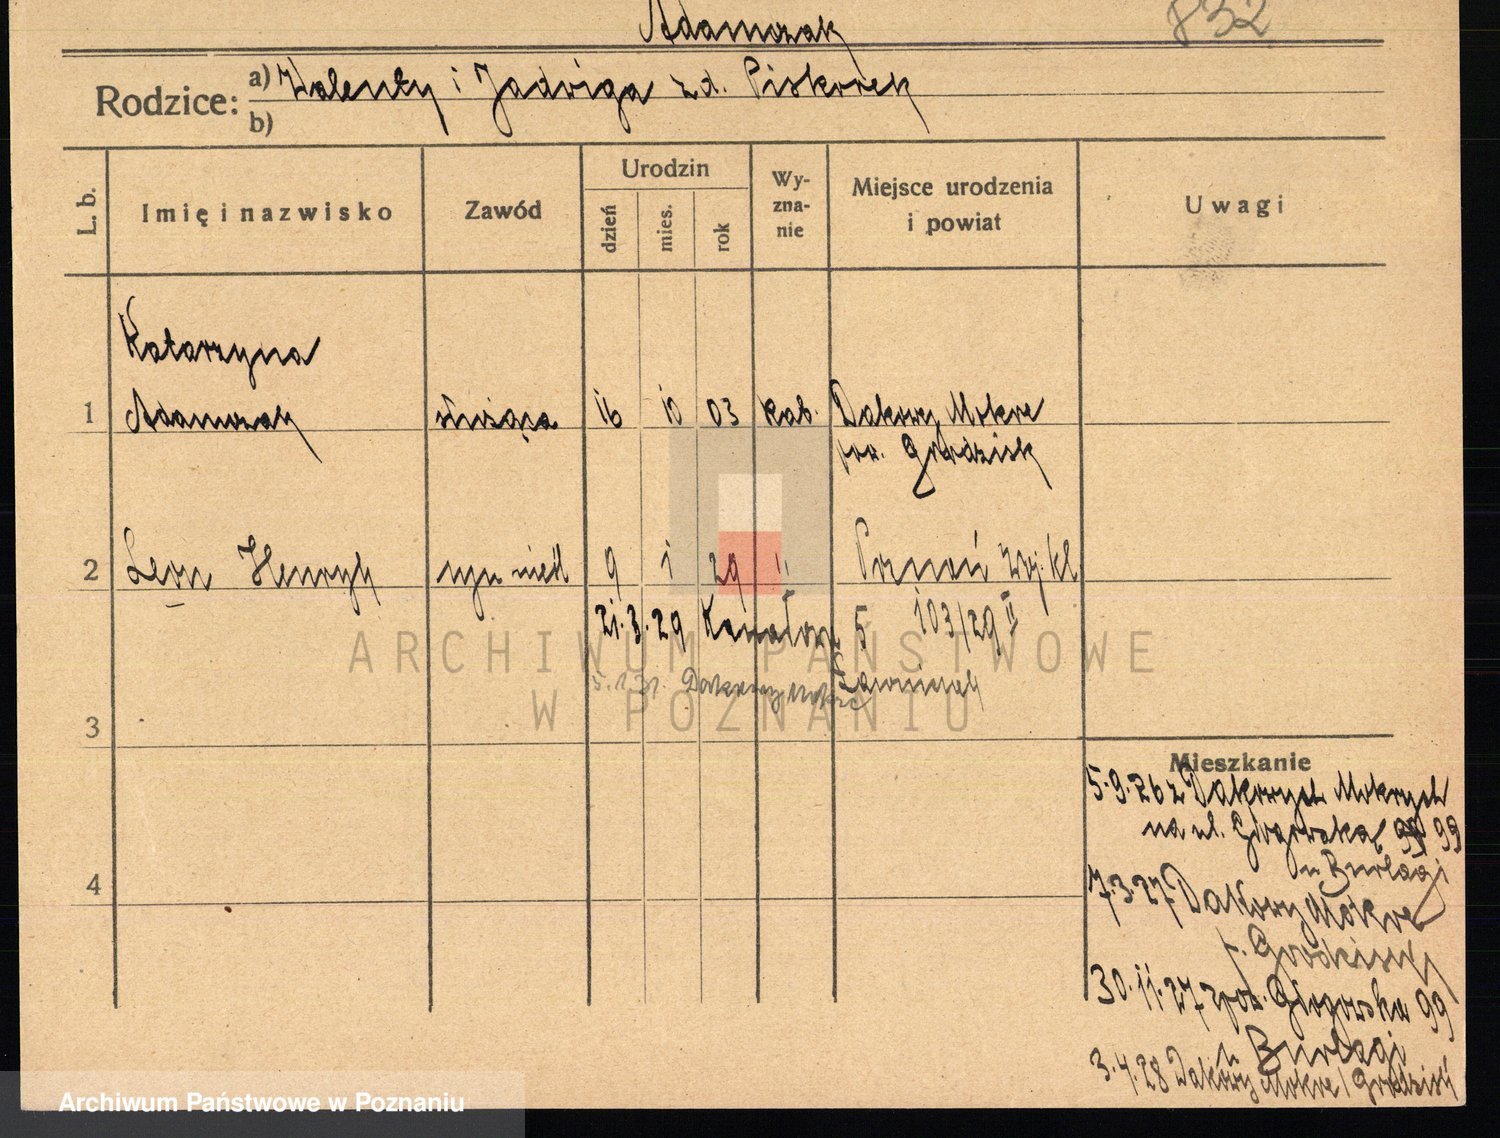 Adamczak
832
Rodzice: a) Walenty i Jadwiga z d. Piskorek
b)
L. b.
Imię i nazwisko
Zawód
Urodzin
dzień
mies.
rok
Wy-
zna-
nie
Miejsce urodzenia
i powiat
Uwagi
Katarzyna
1 Adamczak służąca 16 10 03 kat. Dakowy Mokre
pow. Grodzisk
2 Leon Henryk syn nieśl 9 1 29 " Poznań Woj. kl
21.3.29 Kanałowa 5 103/29 II
Ławniczak
Dakowy Mokre
3
Mieszkanie
5.9.26 z Dakowych Mokrych
na ul. Głogowską 99
u Burlagi
4
7.3.27 Dakowy Mokre
p. Grodzisk
30.11.27 zpow. Głogowska 99
u Burlagi
3.4.28 Dakowy Mokre / Grodzisk
ARCHIWUM PAŃSTWOWE
W POZNANIU
Archiwum Państwowe w Poznaniu